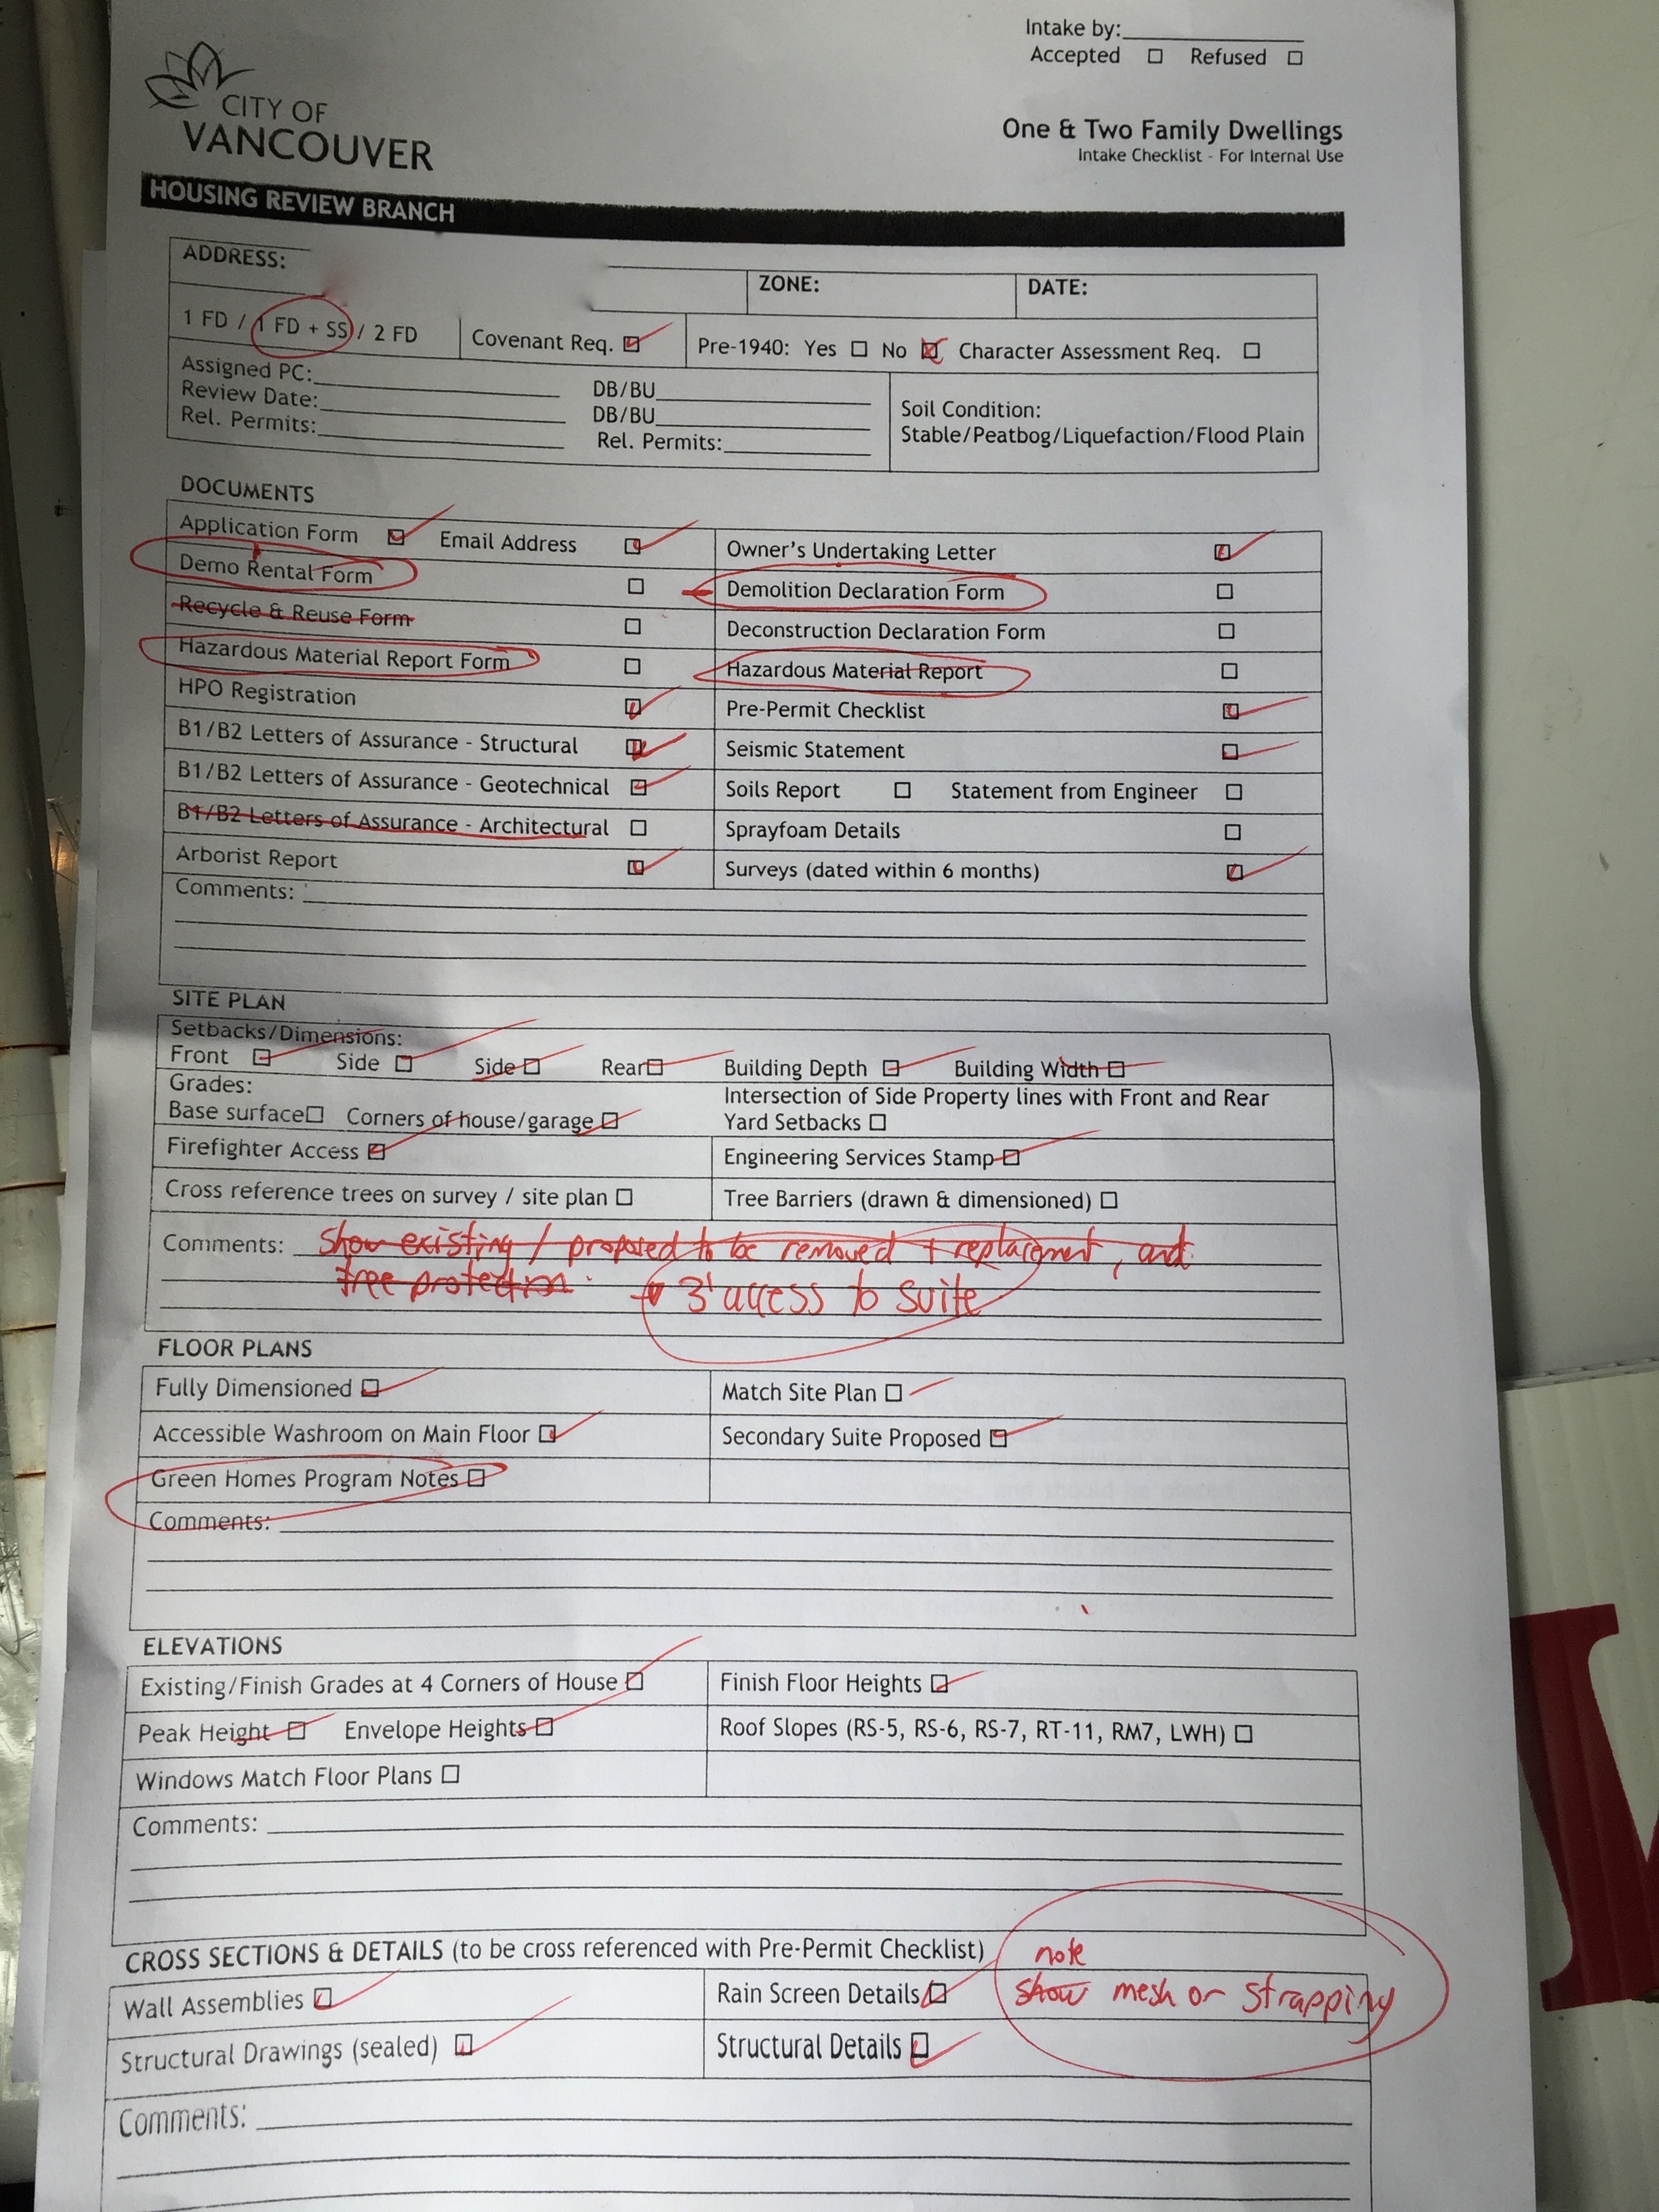 Intake by:
Accepted ☐ Refused ☐
CITY OF
VANCOUVER
One & Two Family Dwellings
Intake Checklist - For Internal Use
HOUSING REVIEW BRANCH
ADDRESS:
ZONE:
DATE:
1 FD / 1 FD + SS / 2 FD
Covenant Req. ☑
Pre-1940: Yes ☐ No ☒ Character Assessment Req. ☐
Assigned PC:
DB/BU
Review Date:
DB/BU
Rel. Permits:
Rel. Permits:
Soil Condition:
Stable/Peatbog/Liquefaction/Flood Plain
DOCUMENTS
Application Form ☑ Email Address ☑
Owner's Undertaking Letter ☑
Demo Rental Form ☐
Demolition Declaration Form ☐
Recycle & Reuse Form ☐
Deconstruction Declaration Form ☐
Hazardous Material Report Form ☐
Hazardous Material Report ☐
HPO Registration ☑
Pre-Permit Checklist ☑
B1/B2 Letters of Assurance - Structural ☑
Seismic Statement ☑
B1/B2 Letters of Assurance - Geotechnical ☑
Soils Report ☐ Statement from Engineer ☐
B1/B2 Letters of Assurance - Architectural ☐
Sprayfoam Details ☐
Arborist Report ☑
Surveys (dated within 6 months) ☑
Comments:
SITE PLAN
Setbacks/Dimensions:
Front ☑ Side ☑ Side ☑ Rear ☑ Building Depth ☑ Building Width ☑
Grades:
Base surface ☐ Corners of house/garage ☑
Intersection of Side Property lines with Front and Rear
Yard Setbacks ☐
Firefighter Access ☑
Engineering Services Stamp ☑
Cross reference trees on survey / site plan ☐
Tree Barriers (drawn & dimensioned) ☐
Comments: show existing / proposed to be removed + replacment, and
tree protection. 3' access to suite
FLOOR PLANS
Fully Dimensioned ☑
Match Site Plan ☑
Accessible Washroom on Main Floor ☑
Secondary Suite Proposed ☑
Green Homes Program Notes ☐
Comments:
ELEVATIONS
Existing/Finish Grades at 4 Corners of House ☑
Finish Floor Heights ☑
Peak Height ☑ Envelope Heights ☑
Roof Slopes (RS-5, RS-6, RS-7, RT-11, RM7, LWH) ☐
Windows Match Floor Plans ☐
Comments:
CROSS SECTIONS & DETAILS (to be cross referenced with Pre-Permit Checklist)
note
Wall Assemblies ☑
Rain Screen Details ☑ show mesh or strapping
Structural Drawings (sealed) ☑
Structural Details ☑
Comments: